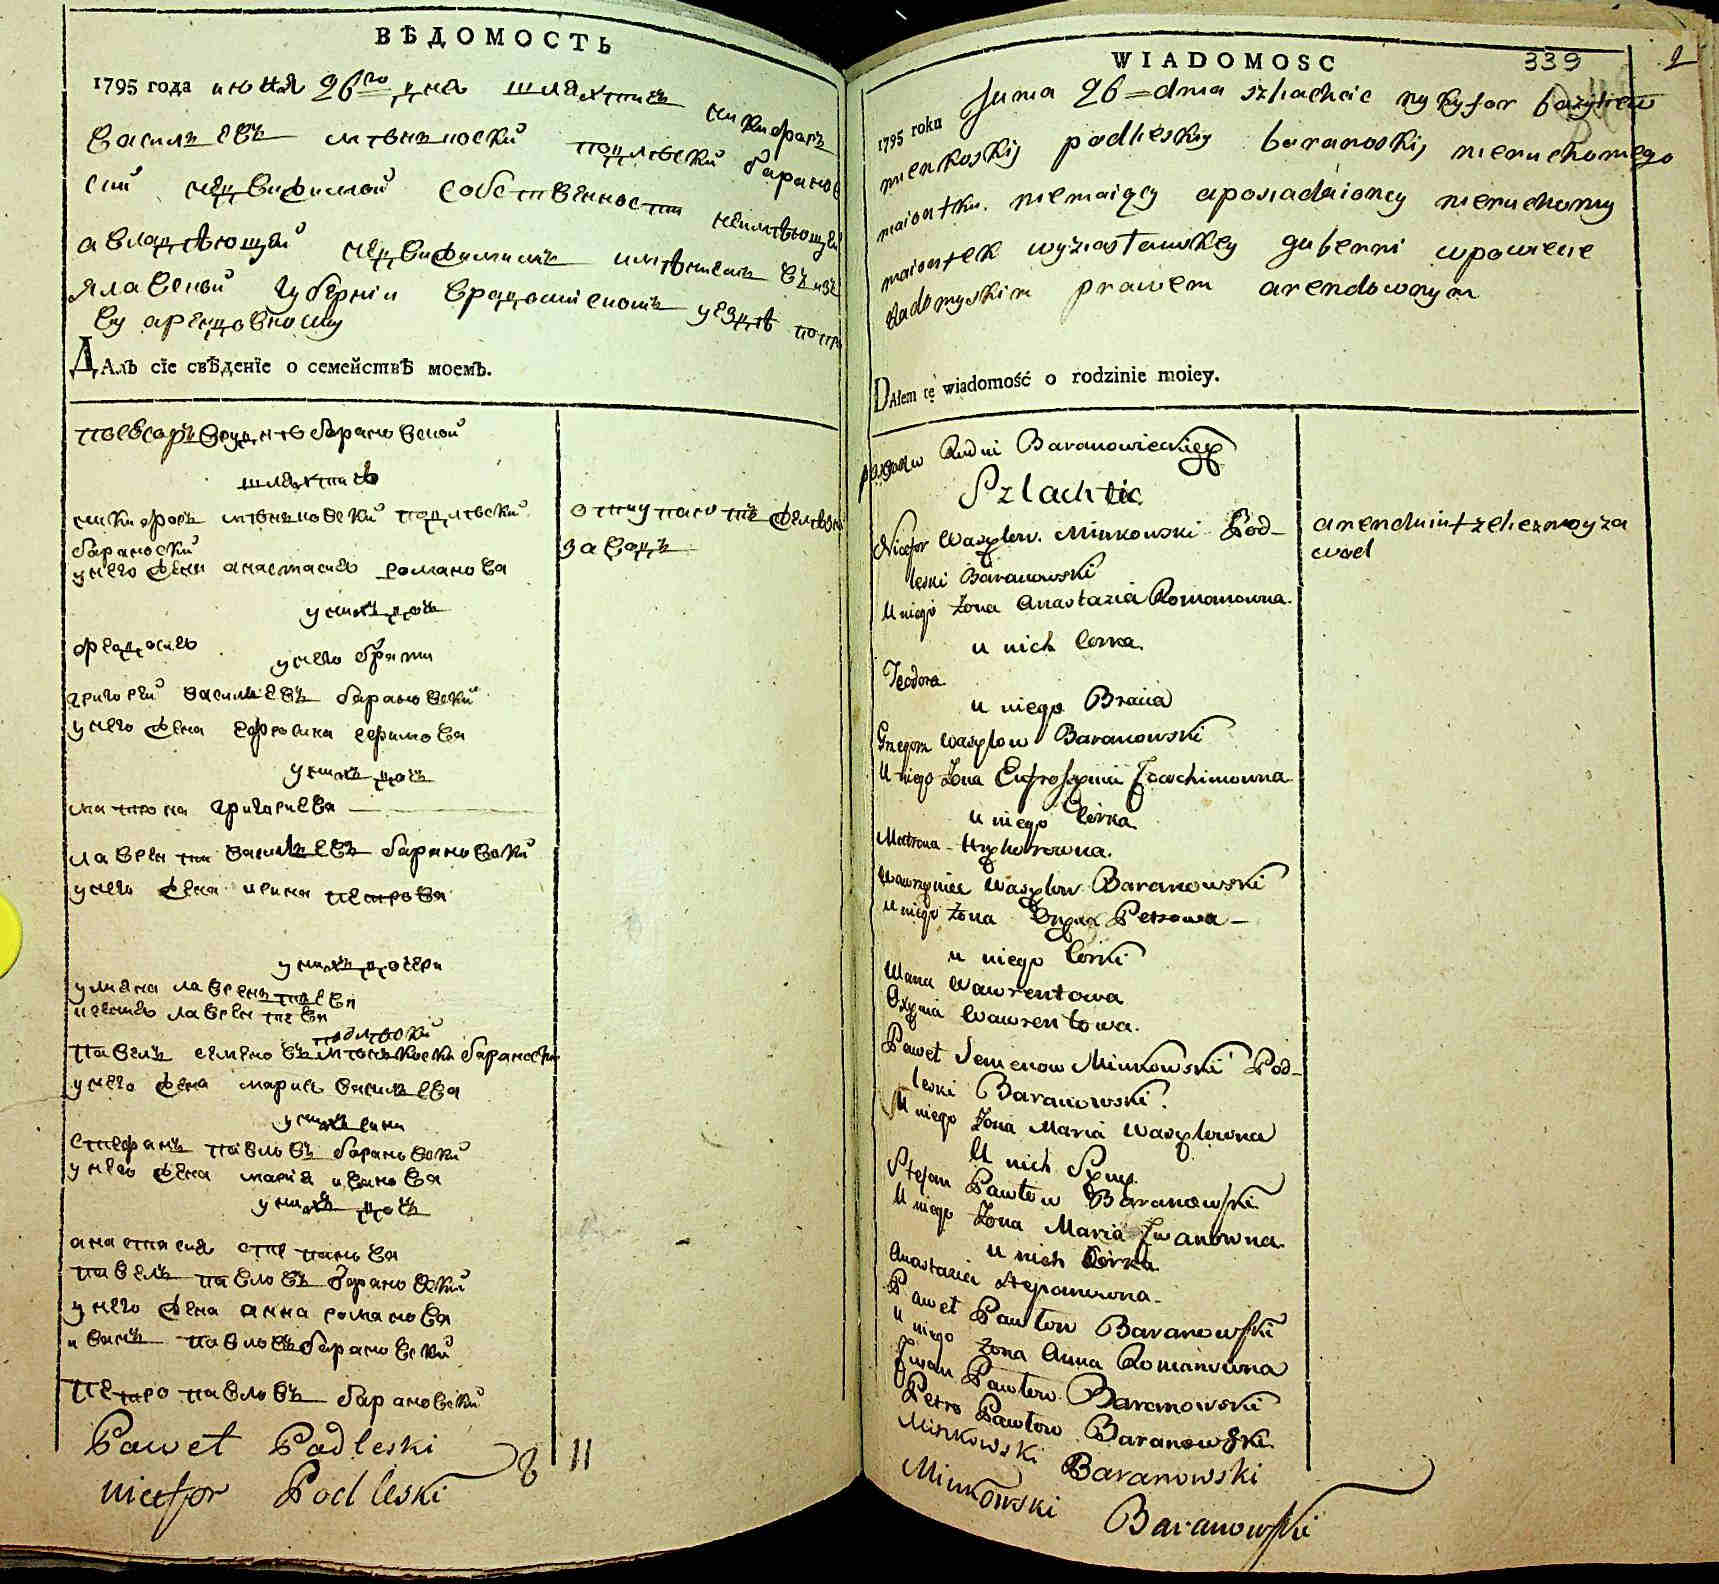 ВѢДОМОСТЬ
1795 года июня 26го дня шляхтичъ никифоръ
Василъевъ мѣньковский подлѣский баранов
ский недвижимой собственности неимѣющий
авладѣющий недвижимымъ имѣниемъ въ изъ
яславской губернїи врадомиском уездѣ попра
ву арендовному
ДАлъ сїе свѣденїе о семействѣ моемъ.
шляхтичъ
никифоръ мѣньковский подлѣский
бараноский
унего жена анастасия романова
унихъ дочъ
федосия
унего брати
григорий василиевъ барановский
унего жена ефросина ефимова
унихъ дочъ
матрона григориева
лаврентий василъевъ барановский
унего жена ирина петрова
унихъ дочери
улияна лаврентиева
лаврентиева
подлѣский
павелъ семеновъ мѣньковски бараноски
унего жена мария василъева
унихъ сини
стефанъ павловъ барановский
унего жена мария иванова
унихъ дочъ
анастасия степанова
павелъ павловъ барановский
унего жена анна романова
иванъ павловъ барановский
петро павловъ барановский
Paweł Padleski
nicefor Podleski
8 11
завод
WIADOMOSC
339
2
1795 roku Junia 26 dnia szlachcic nykyfor bazylew
mienkoskij podleskij baranoskij nieruchomego
maiontku niemaiący aposiadaioncy nieruchomy
maiontek wyziastawskey gubernii wpowiecie
Radomyskim prawem arendownym
DAłem tę wiadomość o rodzinie moiey.
Rudni Baranowieckiey
Szlachcic
Nicefor Wasylow. Minkowski Pod-
leski Baranowski
U niego Zona Anastazia Romanowna.
u nich Corka.
Teodora.
u niego Bracia
Grzegorz Wasylow Baranowski
U niego Zona Eufrosynia Joachimowna
u niego Corka
Matrona Hryhorowna.
Wawrzyniec Wasylow Baranowski
U niego Zona Petrowa
u niego Corki
Ulana Wawrentowa
Wawrentowa.
Paweł Semenow Minkowski Pod-
leski Baranowski.
U niego Zona Maria Wasylowna
U nich Syny.
Stefan Pawłow Baranowski
U niego Zona Maria Iwanowna.
u nich Corka
Anastazia Stepanowna.
Paweł Pawłow Baranowski
u niego Zona Anna Romanowna
Iwan Pawłow Baranowski
Petro Pawłow Baranowski.
Minkowski Baranowski
Minkowski Baranowski